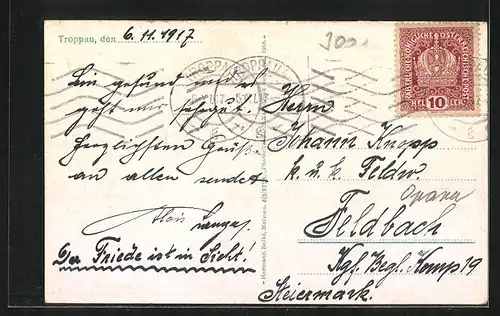 Troppau, den 6.11.1917
300.-
KAISERLICH KÖNIGLICHE ÖSTERREICHISCHE POST
HEL 10 LER
TROPPAU
Bin gesund und es
geht mir sehr gut.
Herzlichsten Grüße
an allen sendet
Alois
Der Friede ist in Sicht!
Herrn
Johann Knopp
k. u. k. Feldw.
Opava
Feldbach
Kgf. Begl. Komp 19
Steiermark.
Hermann Seibt, Meissen.